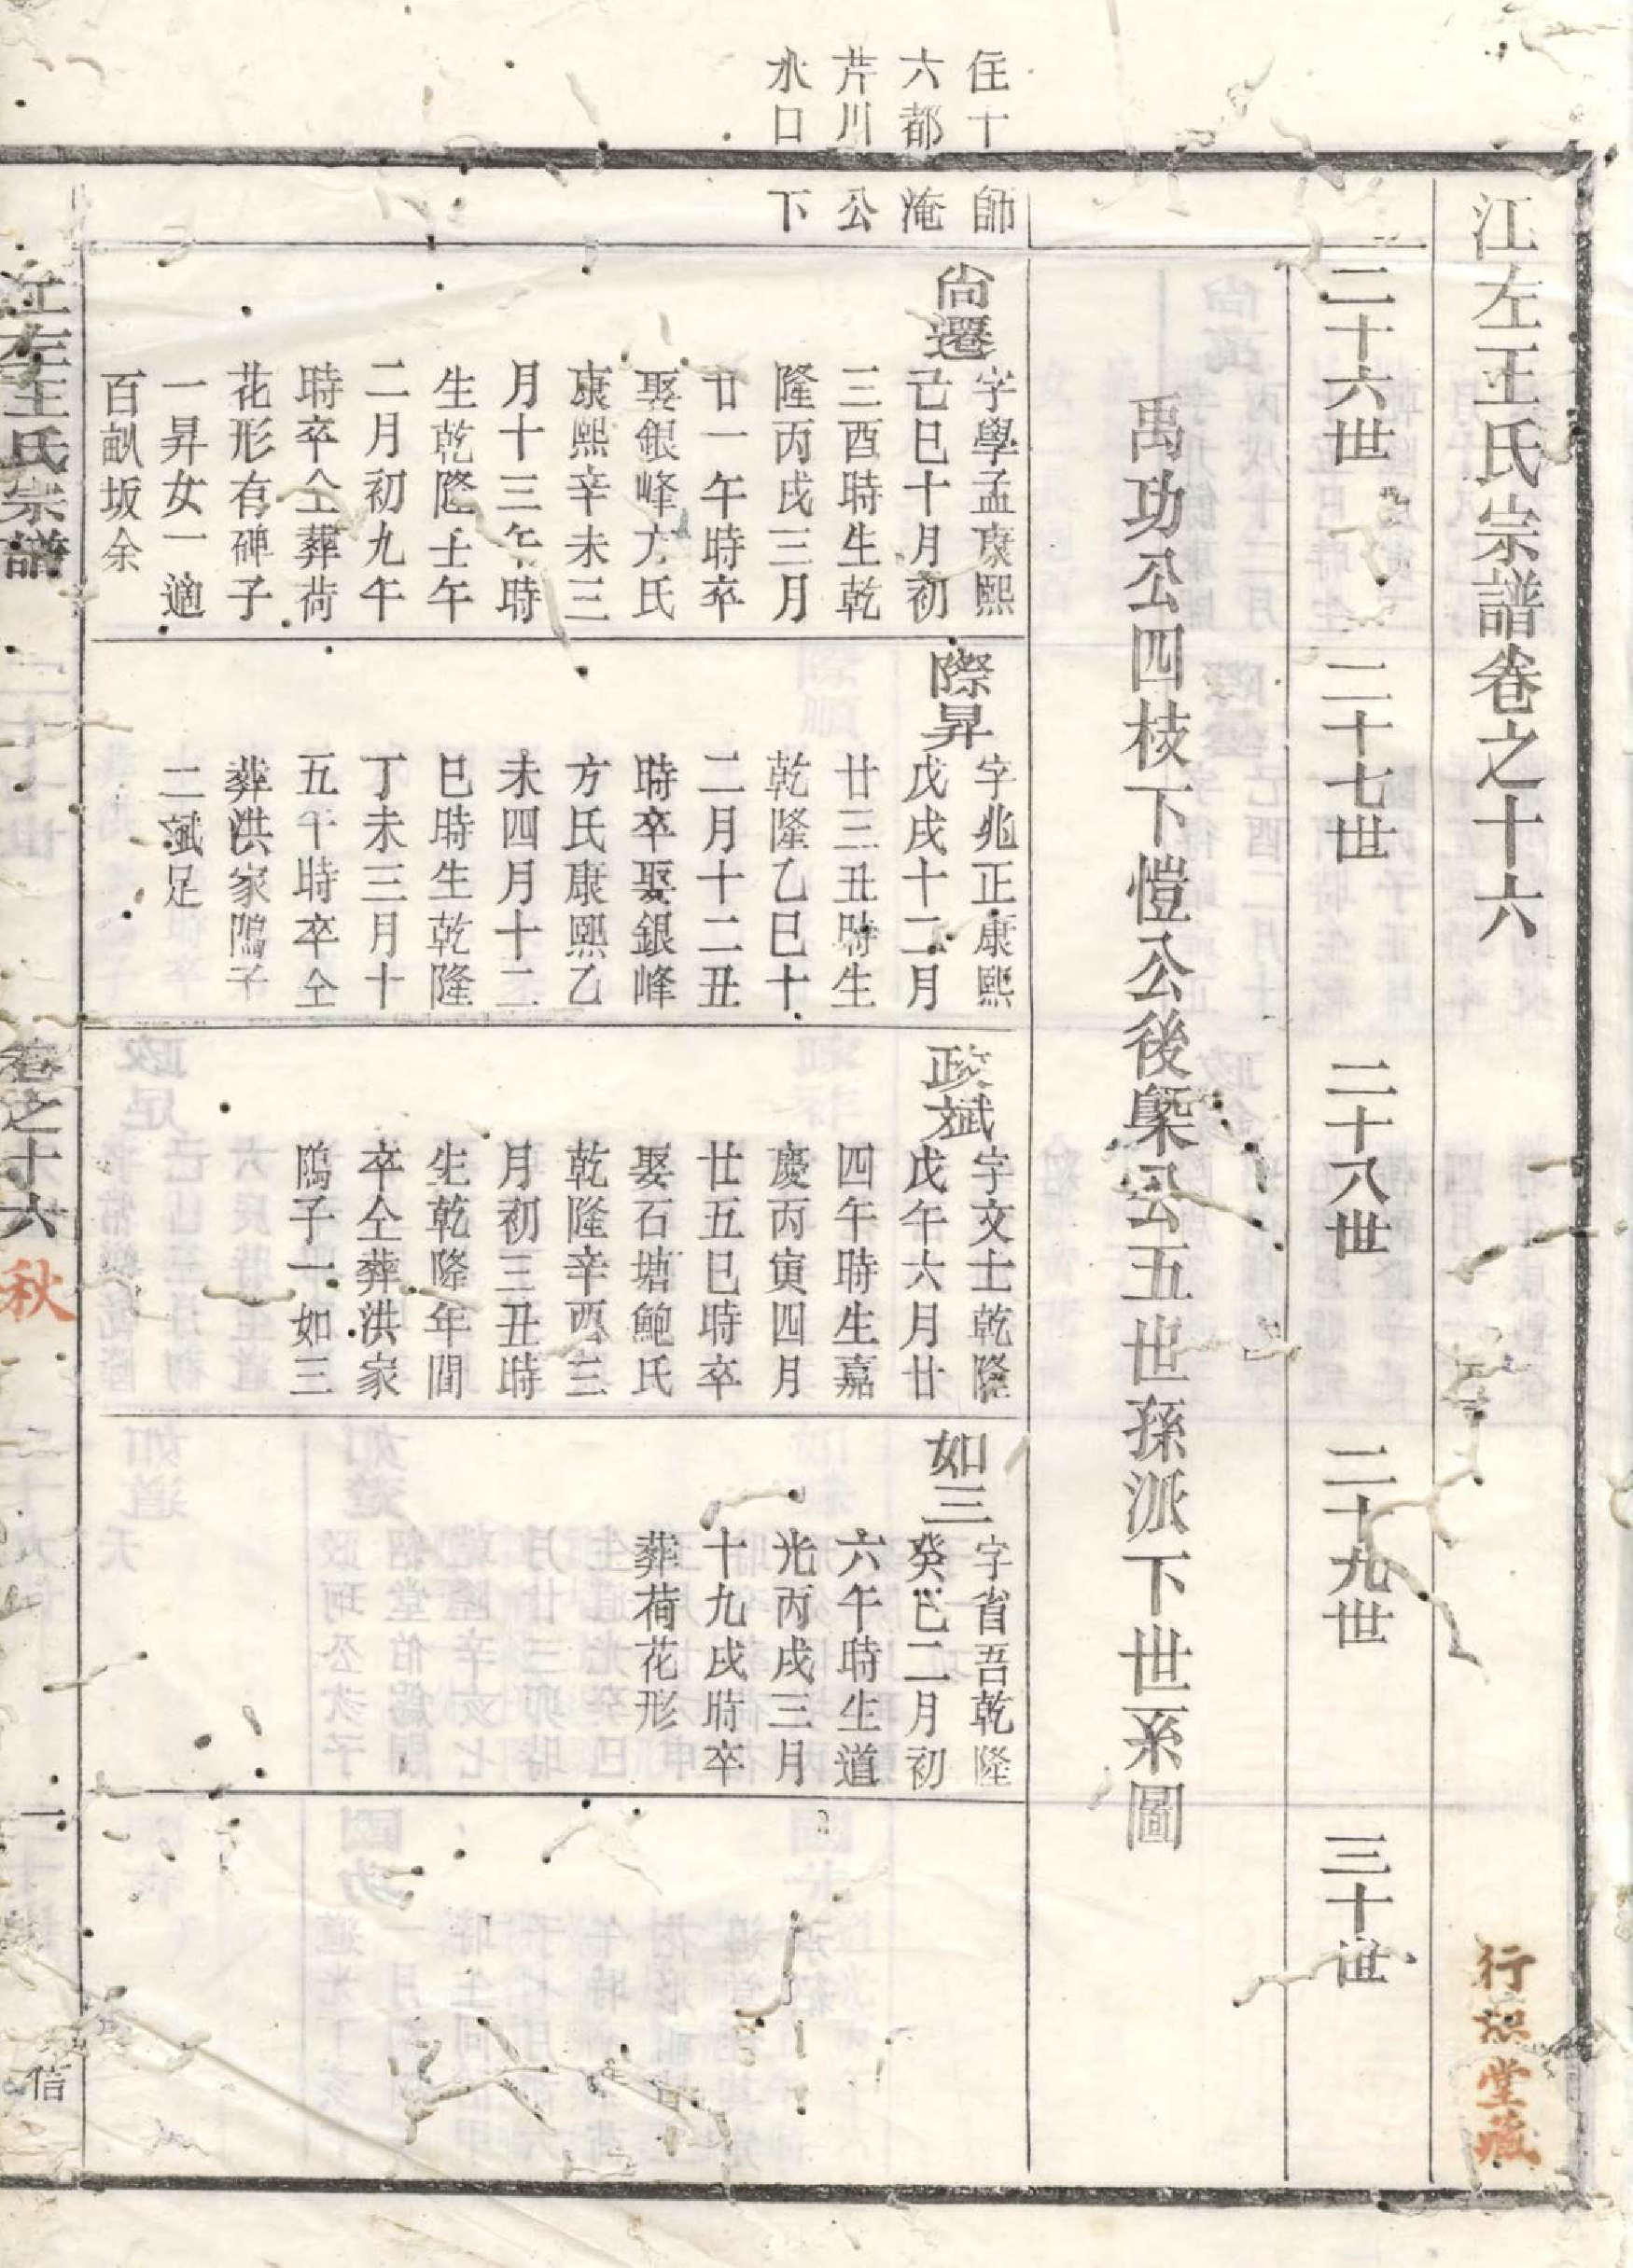 江左王氏宗譜卷之十六
行恕堂藏
二十六世
二十七世
二十八世
二十九世
三十世
禹功公四枝下愷公後槩公五世孫派下世系圖
住十
六都
芹川
水口
師
淹
公
下
尙遷
字學孟康熙
己巳十月初
三酉時生乾
隆丙戌三月
廿一午時卒
娶銀峰方氏
康熙辛未三
月十三午時
生乾隆壬午
二月初九午
時卒仝葬荷
花形有碑子
一昇女一適
百畝坂余
際昇
字兆正康熙
戊戌十二月
廿三丑時生
乾隆乙巳十
二月十二丑
時卒娶銀峰
方氏康熙乙
未四月十二
巳時生乾隆
丁未三月十
五午時卒仝
葬洪家隝子
二斌足
政斌
字文士乾隆
戊午六月廿
四午時生嘉
慶丙寅四月
廿五巳時卒
娶石塘鮑氏
乾隆辛酉三
月初三丑時
生乾隆年間
卒仝葬洪家
隝子一如三
如三
字省吾乾隆
癸巳二月初
六午時生道
光丙戌三月
十九戌時卒
葬荷花形
江左王氏宗譜
卷之十六
秋
一
信